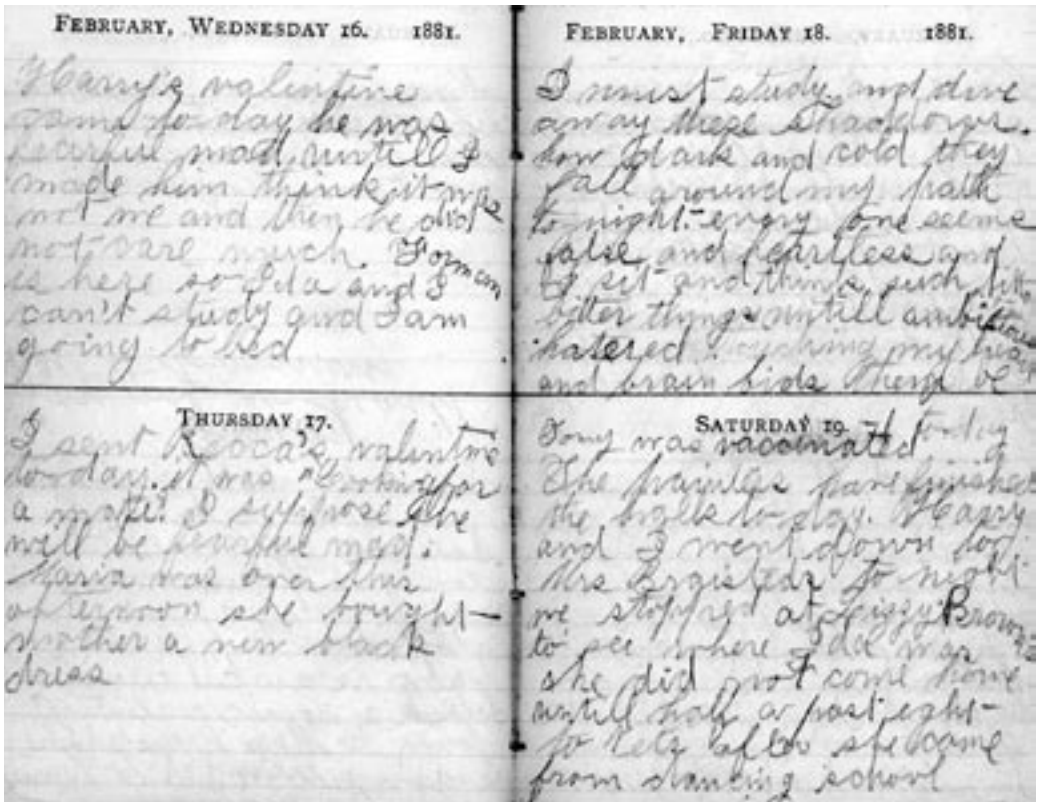 FEBRUARY, WEDNESDAY 16. 1881.
Harry's valintine
came to day he was
fearful mad untill I
made him think it was
not me and then he did
not care much. Forman
is here so Ida and I
can't study and I am
going to bed
THURSDAY 17.
I sent valintine
to day. it was "Looking for
a mate." I suppose she
will be fearful mad.
Maria was over this
afternoon she bought
mother a new back
dress
FEBRUARY, FRIDAY 18. 1881.
I must study and drive
away these shaddows.
how dark and cold they
fall around my path
to night. every one seems
false and heartless and
to sit and think such
bitter things untill
hatered my
and brain bids them be
SATURDAY 19.
Tony was vaccinated to day
The painters have finished
the halls to day. Harry
and I went down to
Mrs to night
we stopped at Lizzy Brown's
to see where Ida was
she did not come home
untill half a past eight
to after she came
from dancing school